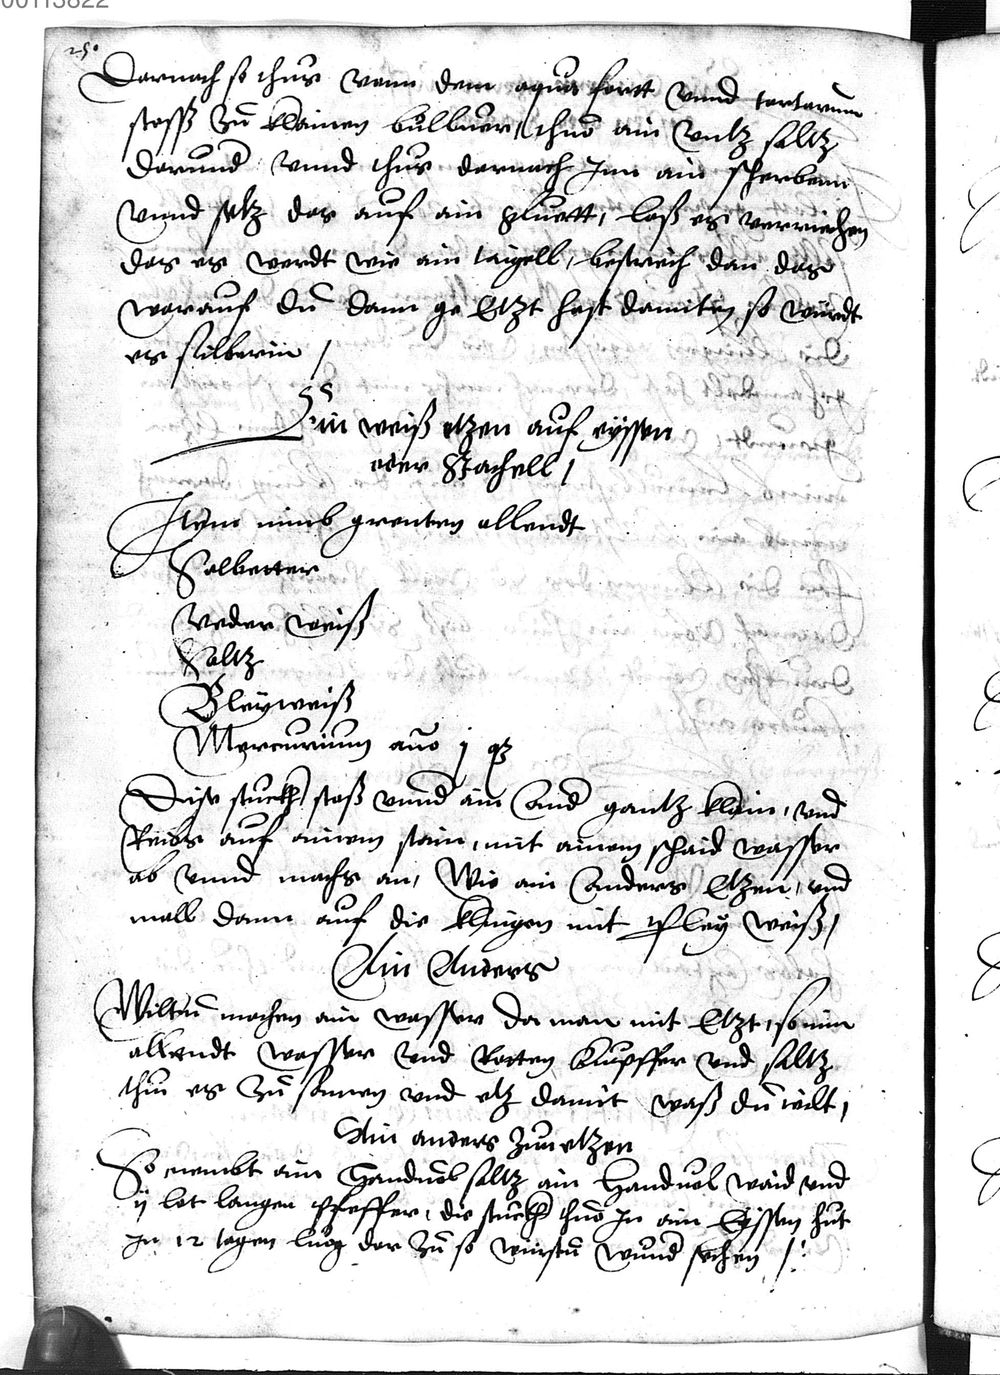 00113822
250
Darnach so thus vonn dem aqua fortt vnnd tartarum
stoss zu klainen bulluer, thuo ain vntz saltz
darunnd vnnd thus darnach Inn ain scherbenn
vnnd setz das auf ain gluett, laß es verriechen
das es werdt wie ain taigell, bestreich dan das
warauf du dann ge Etzt hast damiten so wurdt
es silberin /
Ein weiß etzen auf eyssen
oder Stachell /
Item nimb greenten allendt
Salbetter
veder weiß
Saltz
Bleyweiß
Mercurium ano j
Dise stuckh stoß vnnd ain And gantz klain, vnd
Reibs auf ainem stain, mit ainem schaid wasser
ab vnnd machs an, Wie ain Anders Etzen, vnd
mall dann auf die klingen mit pley weiß,
Ain Anders
Wiltu machen ain wasser da man mit Etzt, so nim
allendt wasser vnd Rotten Kupffer vnd saltz
thu es zu samen vnd etz damit waß du wilt,
Ain anders zuu etzen
So nembt ain Handuol saltz ain Handuol waid vnd
ij lot langen Pfeffer, die stuckh thuo In ain Eyssen hut
In 12 tagen lug dar zu so wurstu wund sehen /